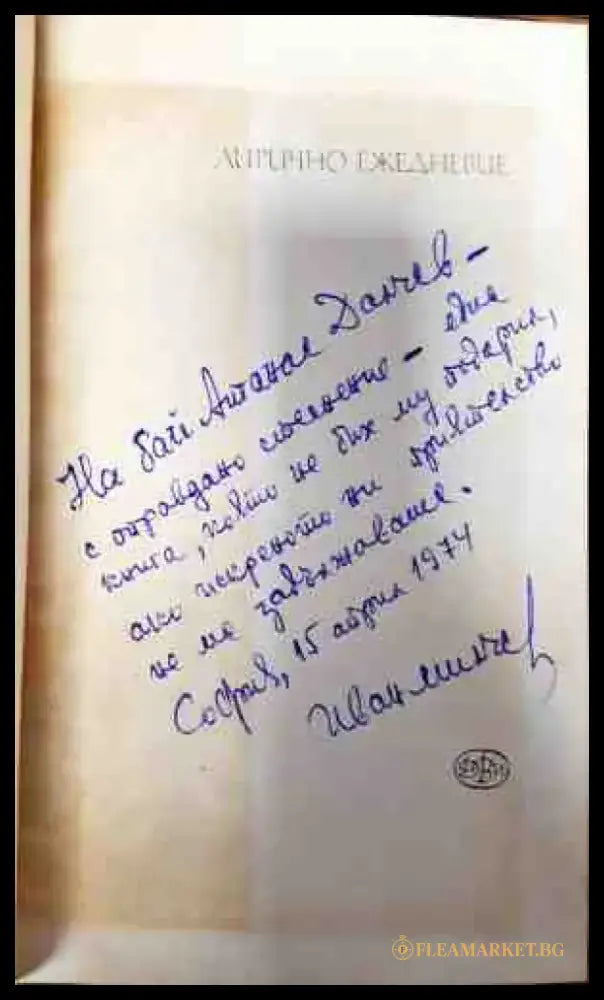 ЛИРИЧНО ЕЖЕДНЕВИЕ
На бай Атанас Данчев –
с оправдано стеснение – една
книга, която не бих му подарил,
ако искреното ни приятелство
не ме задължаваше.
София, 15 април 1974
Иван Минчев
FLEAMARKET.BG